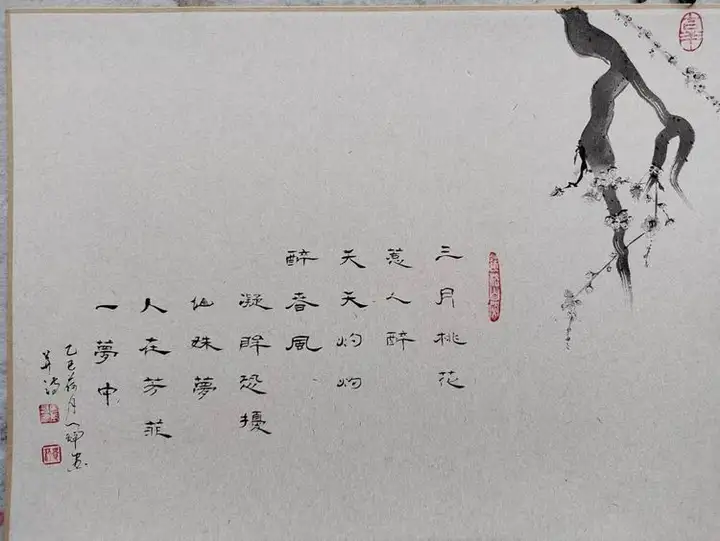 三月桃花
惹人醉
夭夭灼灼
醉春風
凝眸恐擾
仙姝夢
人在芳菲
一夢中
乙巳荷月